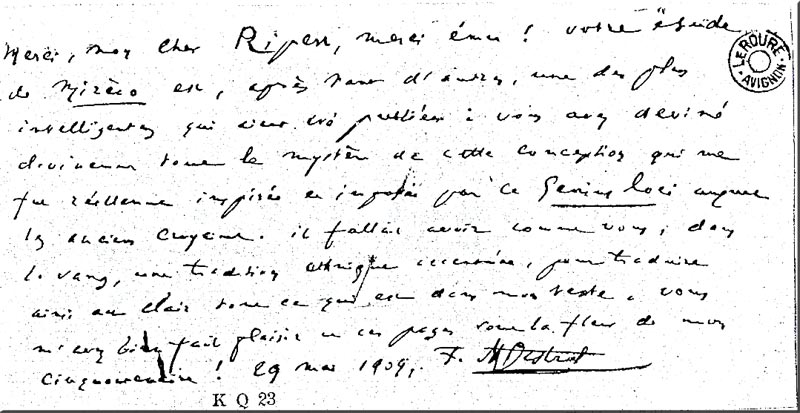 Merci, mon cher Ripert, merci ému ! votre étude
de Mirèio est, après tant d'autres, une des plus
intelligentes qui aient été publiées : vous avez deviné
divinement tout le mystère de cette conception qui me
fut réellement inspirée et imposée par ce Genius loci auquel
les anciens croyaient. il fallait avoir comme vous, dans
le sang, une tradition ethnique accentuée, pour traduire
ainsi au clair tout ce qui est dans mon texte. vous
m'avez bien fait plaisir et ces pages sont la fleur de mon
cinquantenaire ! 29 mai 1909, F. Mistral
LEROURE
AVIGNON
K Q 23